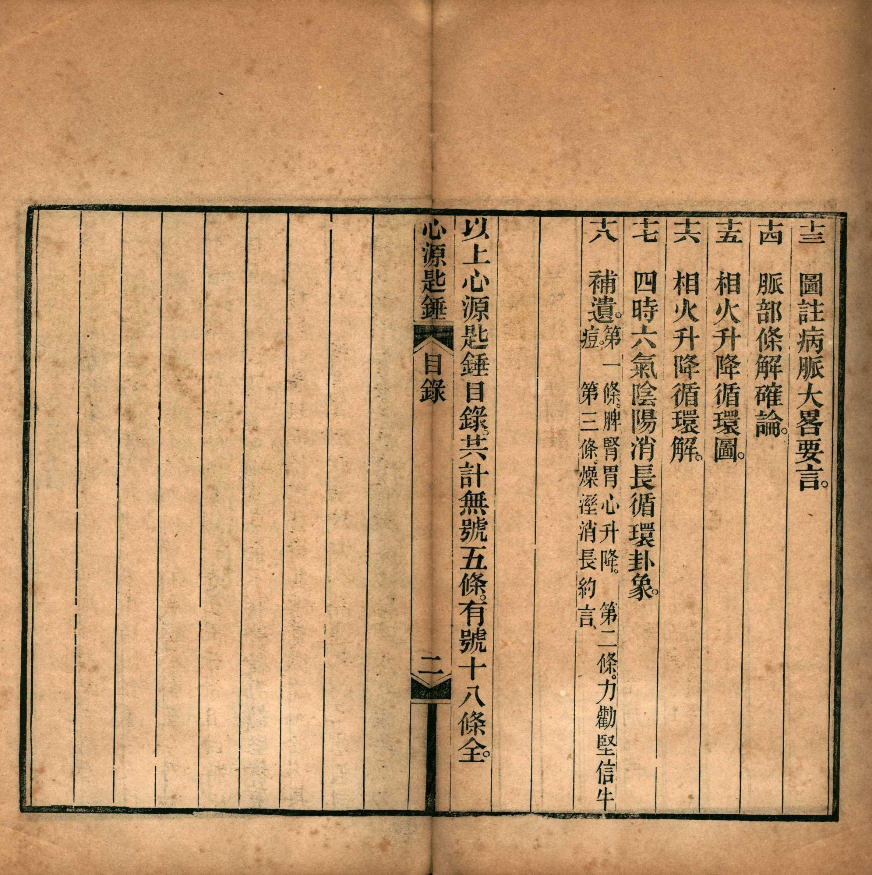 十三 圖註病脈大畧要言。
十四 脈部條解確論。
十五 相火升降循環圖。
十六 相火升降循環解。
十七 四時六氣陰陽消長循環卦象。
十八 補遺。
第一條。脾腎胃心升降。 第二條。力勸堅信牛
痘。 第三條。燥溼消長約言。
以上心源匙錘目錄。共計無號五條。有號十八條全。
心源匙錘 目錄 二